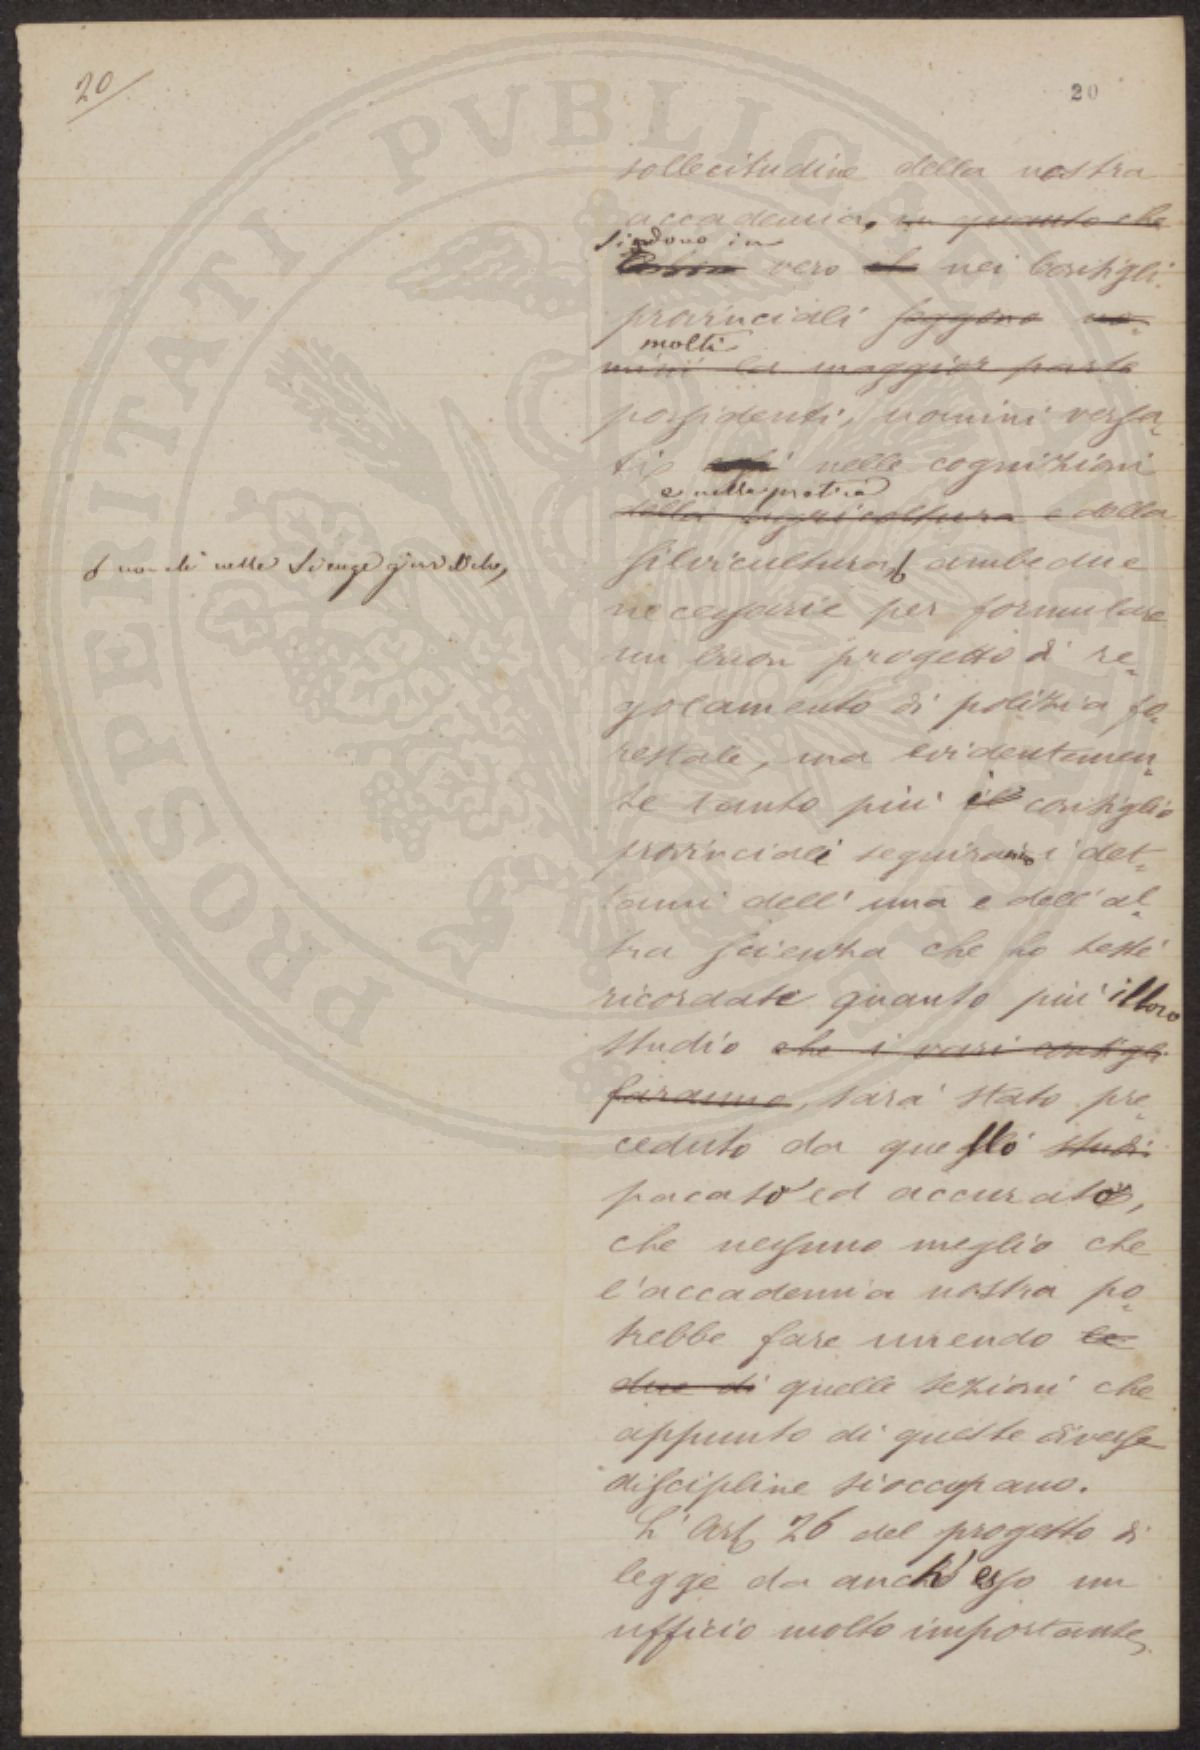 20
20
sollecitudine della nostra
accademia. in quanto che
Siedono in
vero nei Consigli
provinciali seggono uo-
molti
mini la maggior parte
possidenti, uomini versa-
ti nelle cognizioni
e nella pratica
della agricoltura e della
silvicultura ambedue
e non di nelle Scienze giuridiche,
necessarie per formulare
un buon progetto di re-
golamento di polizia fo-
restale, ma evidentemen-
te tanto più i consigli
provinciali seguiranno i det-
tami dell'una e dell'al-
tra scienza che ho testè
ricordate quanto più il loro
studio che i vari consigli
faranno, sarà stato pre-
ceduto da quello studi
pacato ed accurato,
che nessuno meglio che
l'accademia nostra po-
trebbe fare unendo le
due di quelle sezioni che
appunto di queste diverse
discipline si occupano.
L'Art 26 del progetto di
legge da anch'esso un
ufficio molto importante
PROSPERITATI PVBLICAE